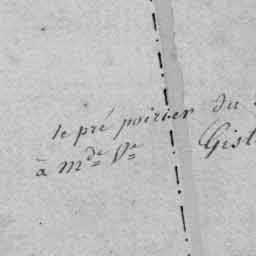 le pré poirier du
à m^de V^e Gist